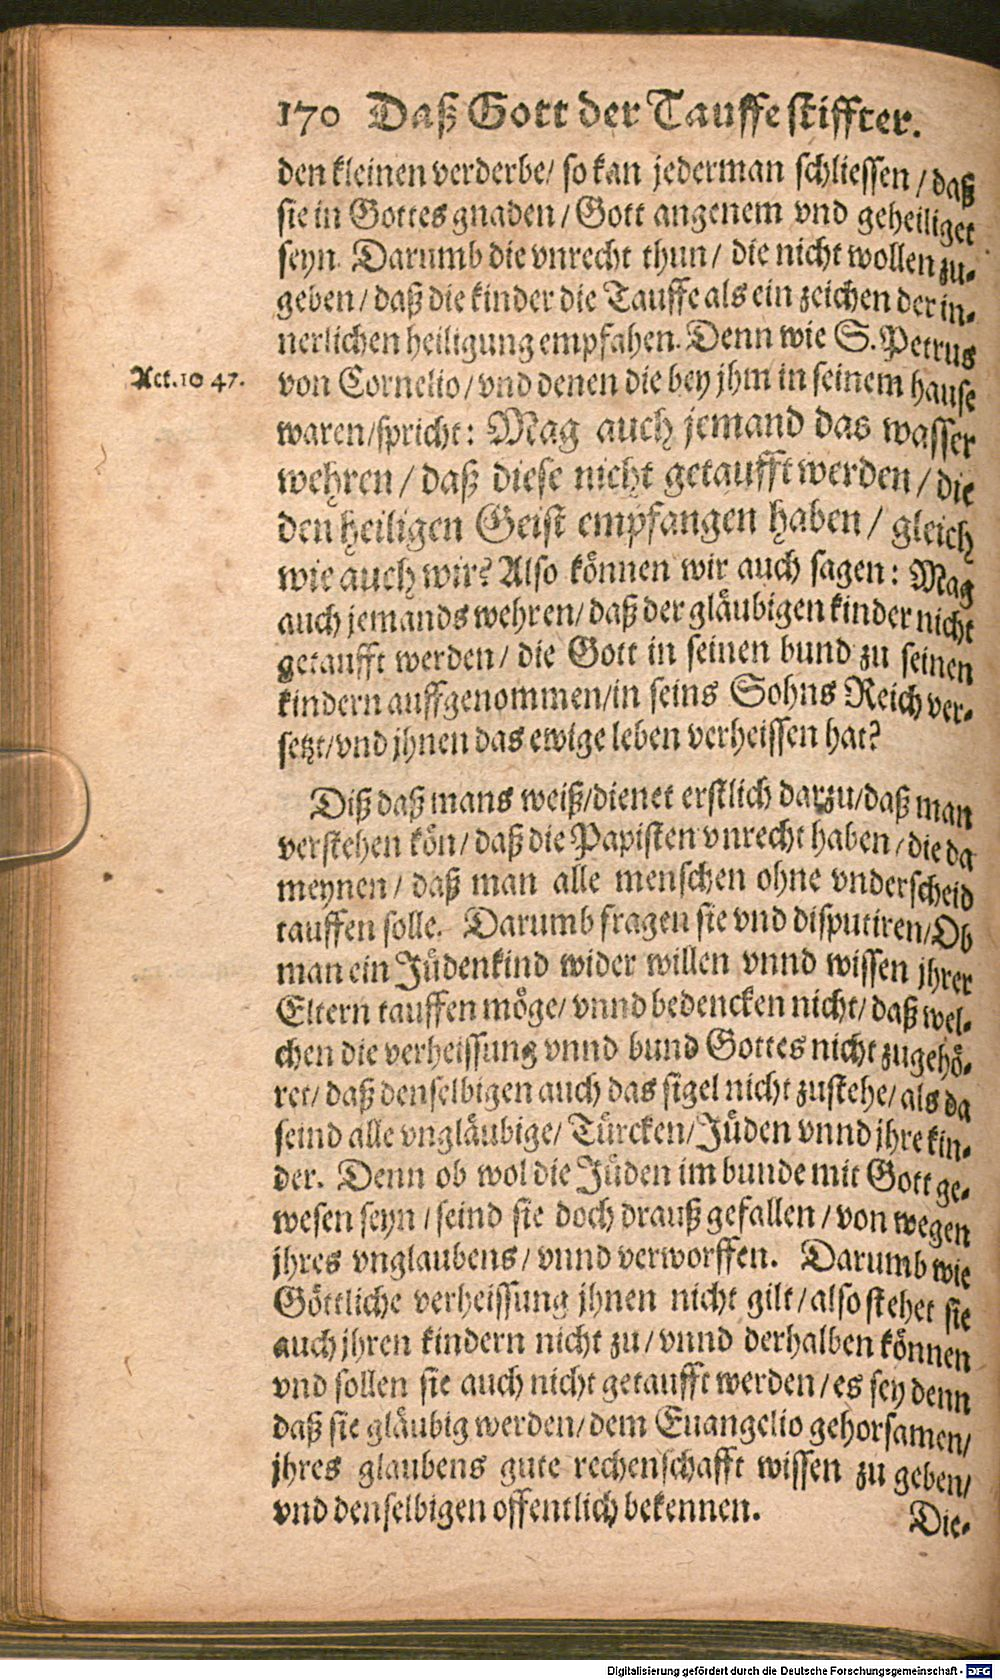 170 Daß Gott der Tauffe stiffter.
den kleinen verderbe/ so kan jederman schliessen / daß
sie in Gottes gnaden / Gott angenem vnd geheiliget
seyn. Darumb die vnrecht thun/ die nicht wollen zu-
geben / daß die kinder die Tauffe als ein zeichen der in-
nerlichen heiligung empfahen. Denn wie S. Petrus
Act. 10 47.
von Cornelio / vnd denen die bey jhm in seinem hause
waren/spricht: Mag auch jemand das wasser
wehren / daß diese nicht getaufft werden / die
den heiligen Geist empfangen haben / gleich
wie auch wir? Also können wir auch sagen: Mag
auch jemands wehren/ daß der gläubigen kinder nicht
getaufft werden/ die Gott in seinen bund zu seinen
kindern auffgenommen/in seins Sohns Reich ver-
setzt/vnd jhnen das ewige leben verheissen hat?
Diß daß mans weiß/dienet erstlich darzu/daß man
verstehen kön/ daß die Papisten vnrecht haben / die da
meynen / daß man alle menschen ohne vnderscheid
tauffen solle. Darumb fragen sie vnd disputiren/Ob
man ein Jüdenkind wider willen vnnd wissen jhrer
Eltern tauffen möge/ vnnd bedencken nicht/ daß wel-
chen die verheissung vnnd bund Gottes nicht zugehö-
ret/ daß denselbigen auch das sigel nicht zustehe/ als da
seind alle vngläubige/ Türcken/ Jüden vnnd jhre kin-
der. Denn ob wol die Jüden im bunde mit Gott ge-
wesen seyn / seind sie doch drauß gefallen / von wegen
jhres vnglaubens / vnnd verworffen. Darumb wie
Göttliche verheissung jhnen nicht gilt / also stehet sie
auch jhren kindern nicht zu / vnnd derhalben können
vnd sollen sie auch nicht getaufft werden / es sey denn
daß sie gläubig werden / dem Euangelio gehorsamen/
jhres glaubens gute rechenschafft wissen zu geben/
vnd denselbigen offentlich bekennen.
Die-
Digitalisierung gefördert durch die Deutsche Forschungsgemeinschaft - DFG